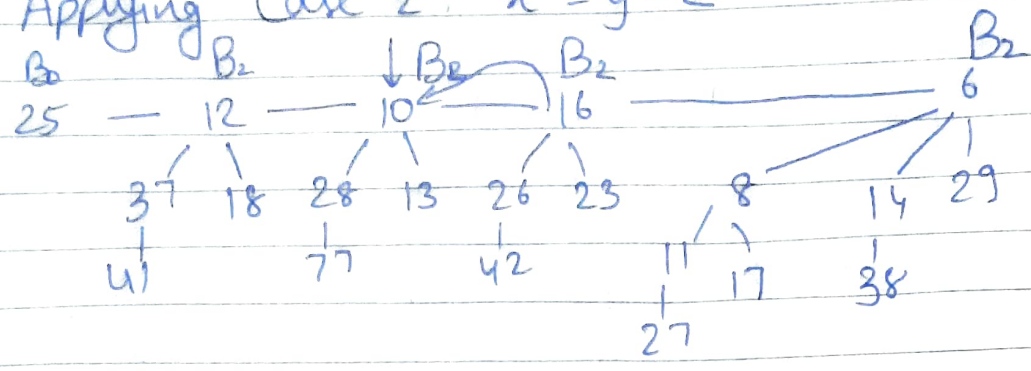 Applying Case 2
B0 B2 B2 B2 B2
25 — 12 — 10 16 — 6
37 18 28 13 26 23 8 14 29
41 77 42 11 17 38
27